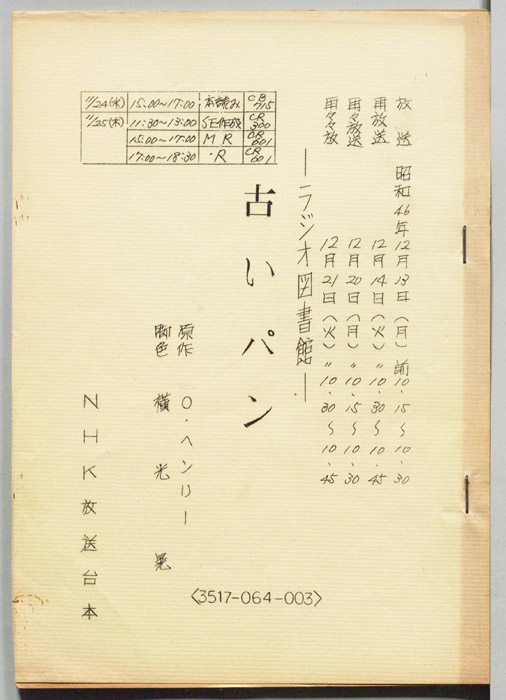 11/24(水) 15:00~17:00 本読み CB 715
11/25(木) 11:30~13:00 SE作成 CR 300
15:00~17:00 MR CR 601
17:00~18:30 ・R CR 601
放送 昭和46年12月13日(月)前10・15~10・30
再放送 12月14日(火)〃10・30~10・45
再々放送 12月20日(月)〃10・15~10・30
再々々放 12月21日(火)〃10・30~10・45
―ラジオ図書館―
古いパン
原作 O・ヘンリー
脚色 横光 晃
NHK放送台本
<3517-064-003>